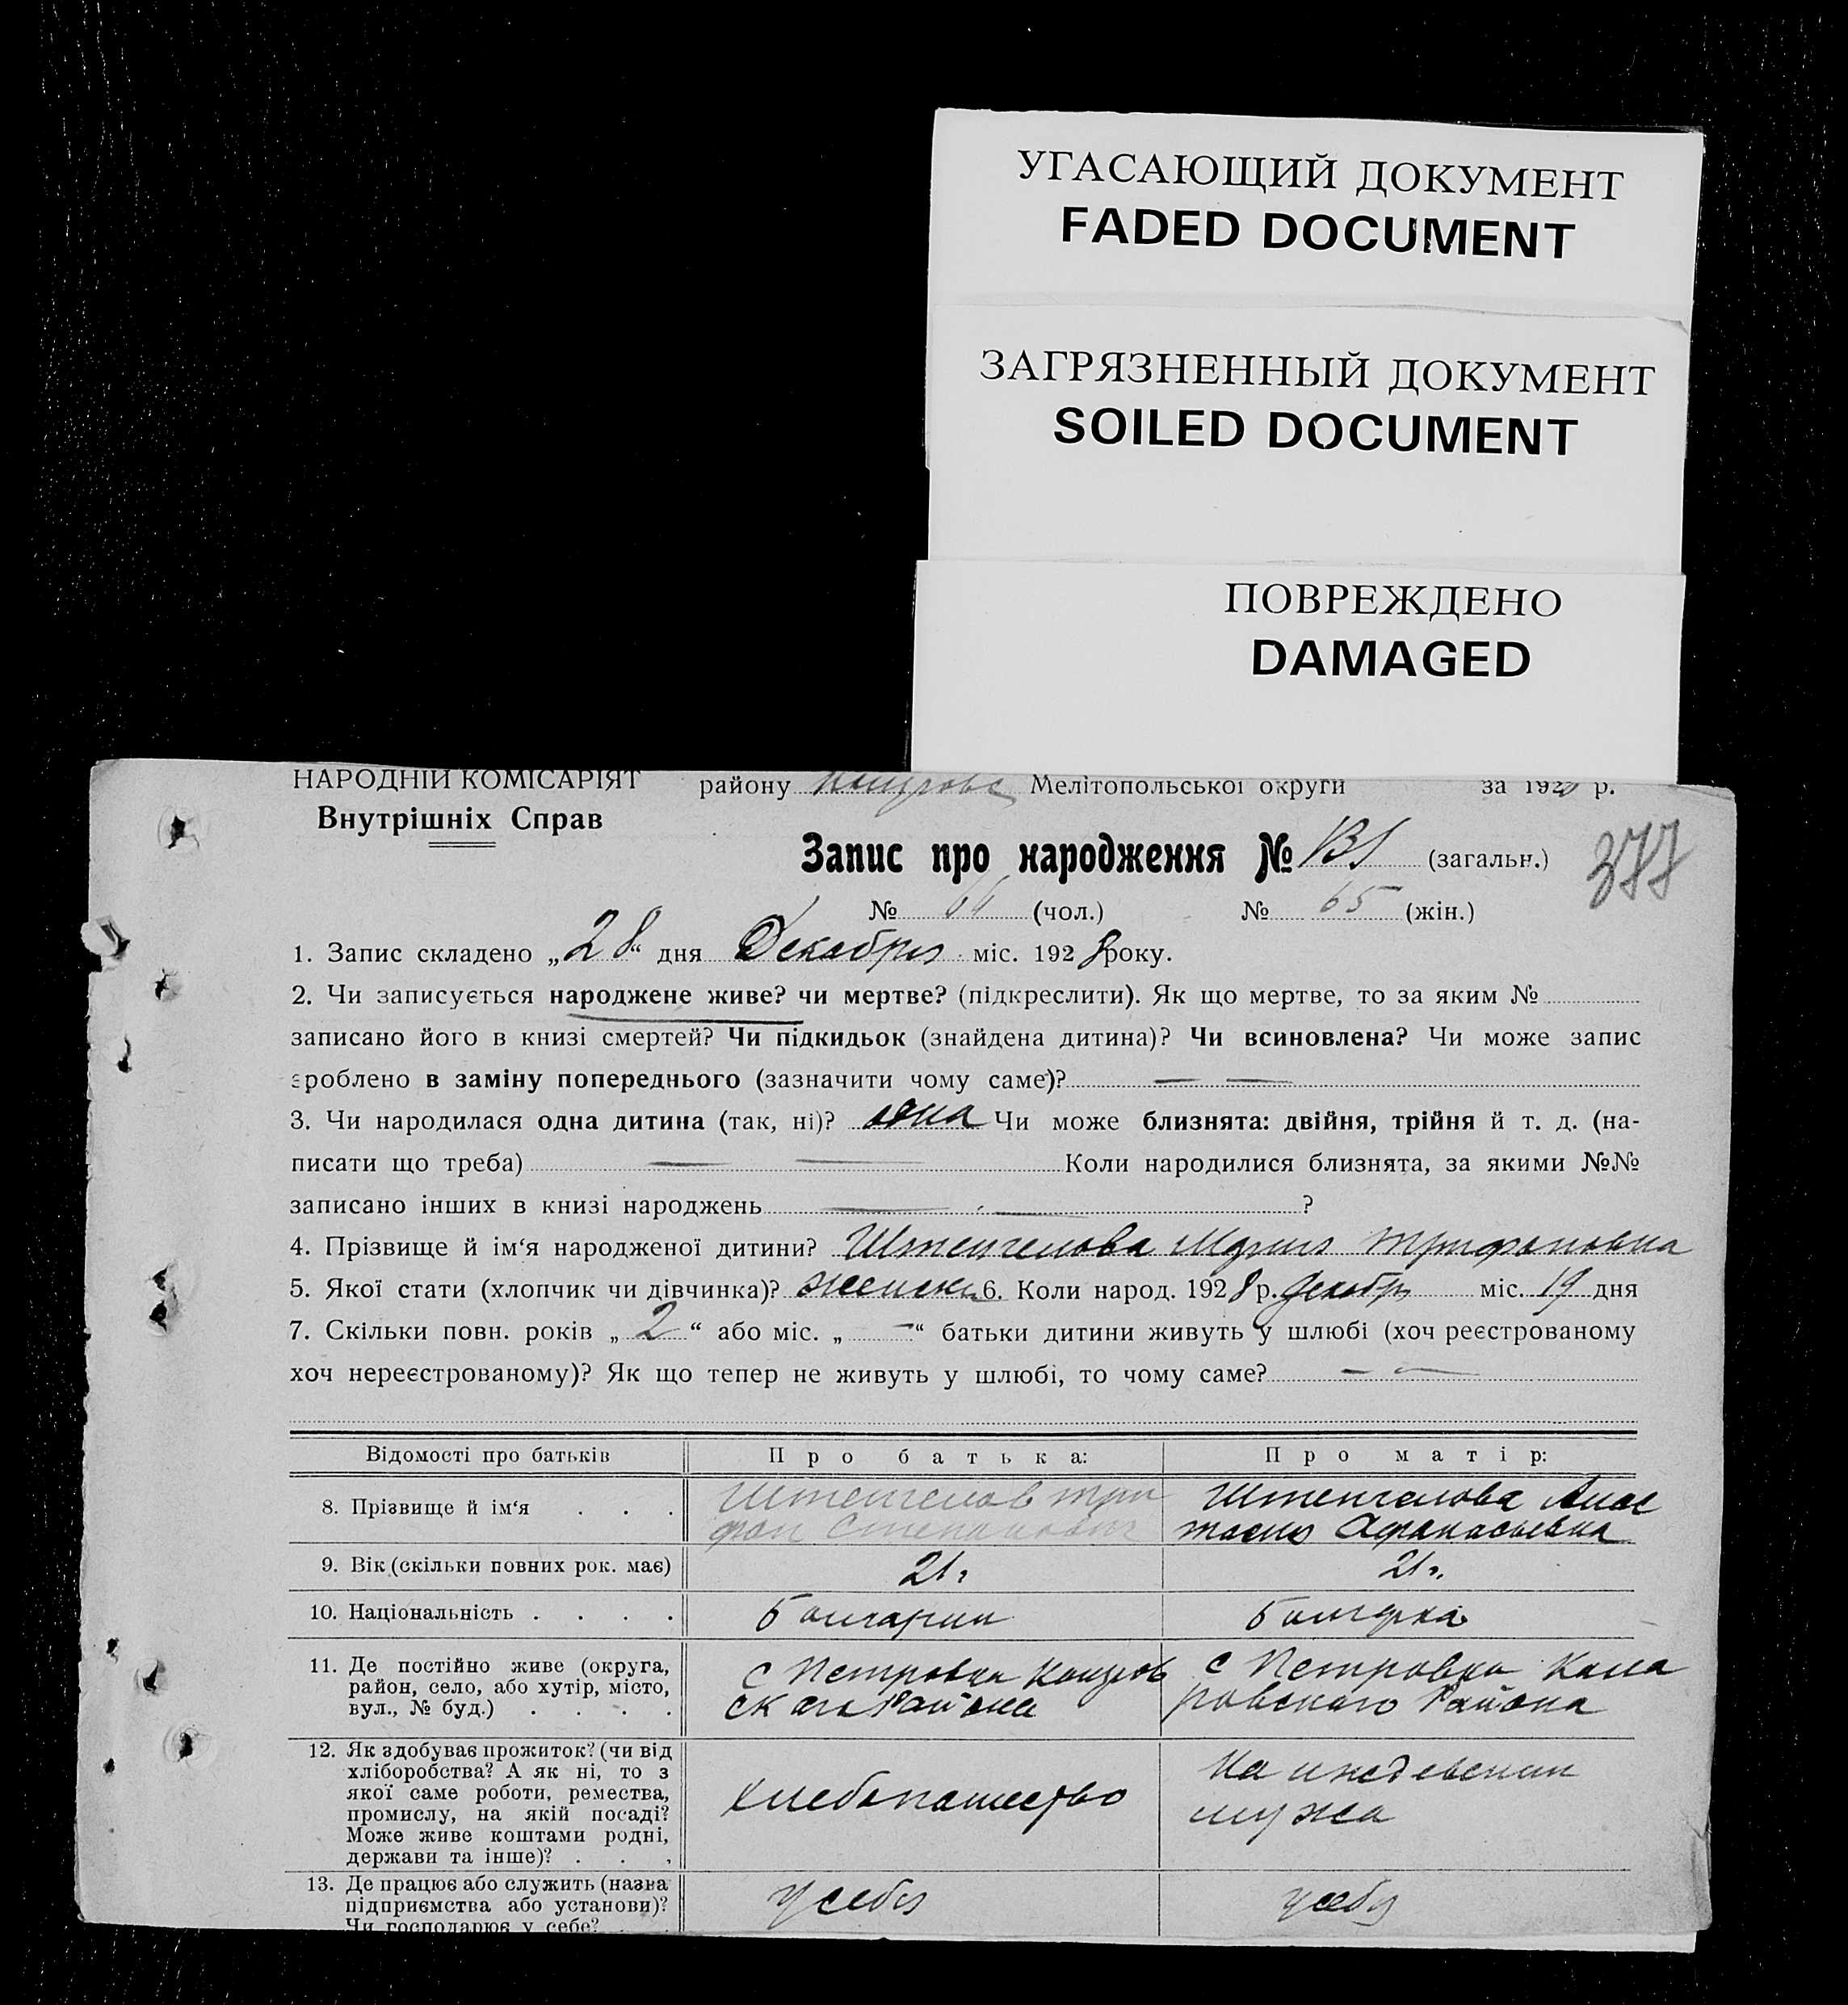 УГАСАЮЩИЙ ДОКУМЕНТ
FADED DOCUMENT
ЗАГРЯЗНЕННЫЙ ДОКУМЕНТ
SOILED DOCUMENT
ПОВРЕЖДЕНО
DAMAGED
НАРОДНІЙ КОМІСАРІЯТ району Мелітопольської округи за 192 р.
Внутрішніх Справ
Запис про народження № (загальн.) 377
№ (чол.) № 65 (жін.)
1. Запис складено „28“ дня Декабря міс. 1928 року.
2. Чи записується народжене живе? чи мертве? (підкреслити). Як що мертве, то за яким №
записано його в книзі смертей? Чи підкидьок (знайдена дитина)? Чи всиновлена? Чи може запис
зроблено в заміну попереднього (зазначити чому саме)? — —
3. Чи народилася одна дитина (так, ні)? одна Чи може близнята: двійня, трійня й т. д. (на-
писати що треба) — — Коли народилися близнята, за якими №№
записано інших в книзі народжень — — ?
4. Прізвище й ім‘я народженої дитини? Штенгелова Мария Трифоновна
5. Якої стати (хлопчик чи дівчинка)? женск 6. Коли народ. 1928 р. Декабря міс. 19 дня
7. Скільки повн. років „2“ або міс. „—“ батьки дитини живуть у шлюбі (хоч реєстрованому
хоч нереєстрованому)? Як що тепер не живуть у шлюбі, то чому саме? — —
Відомості про батьків Про батька: Про матір:
8. Прізвище й ім‘я . . . Штенгелов Три Штенгелова Анас
фон Степанович тасия Афанасьевна
9. Вік (скільки повних рок. має) 21 г. 21 г.
10. Національність . . . . Болгарин Болгарка
11. Де постійно живе (округа, с Петровка Коларов с Петровка Кола
район, село, або хутір, місто, ского Района ровского Района
вул., № буд.) . . . .
12. Як здобуває прожиток? (чи від
хліборобства? А як ні, то з На иждевении
якої саме роботи, ремества, хлебопашество мужа
промислу, на якій посаді?
Може живе коштами родні,
держави та інше)? . . .
13. Де працює або служить (назва у себя у себя
підприємства або установи)?
Чи господарює у себе? . .